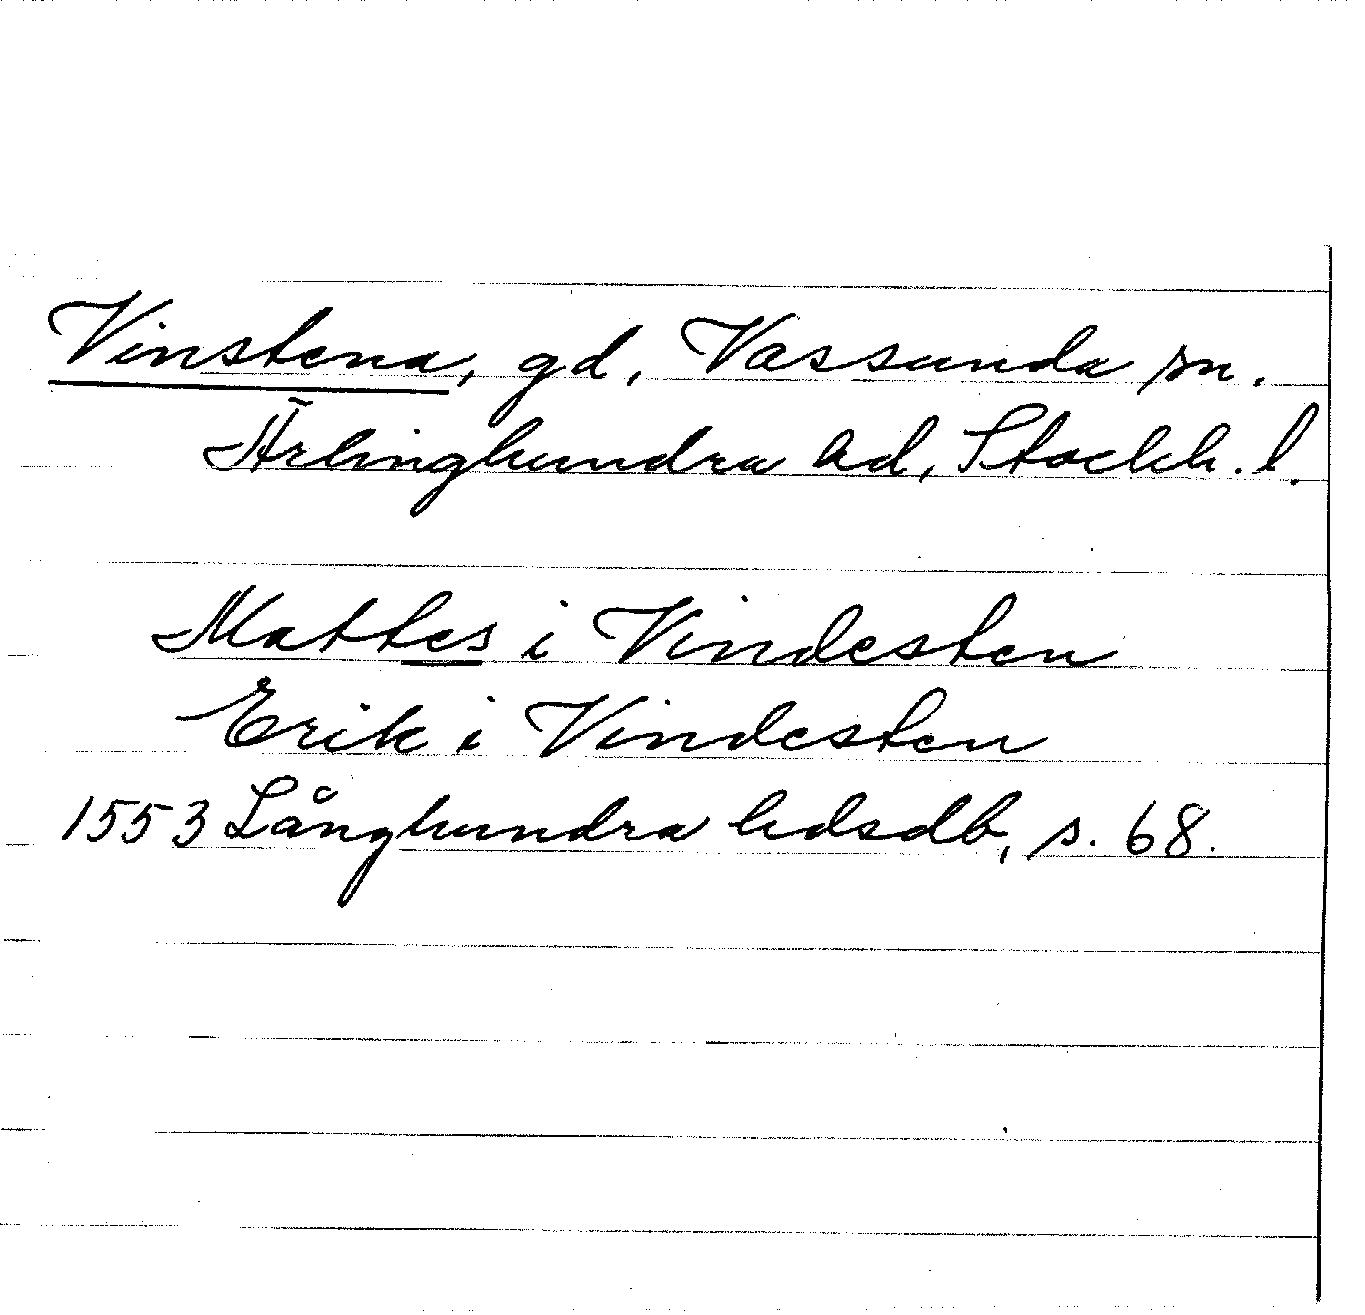 Vinstena, gd, Vassunda sn.
Ärlinghundra hd, Stockh. l.
Mattes i Vindesten
Erik i Vindesten
1553 Långhundra hdsdb, s. 68.